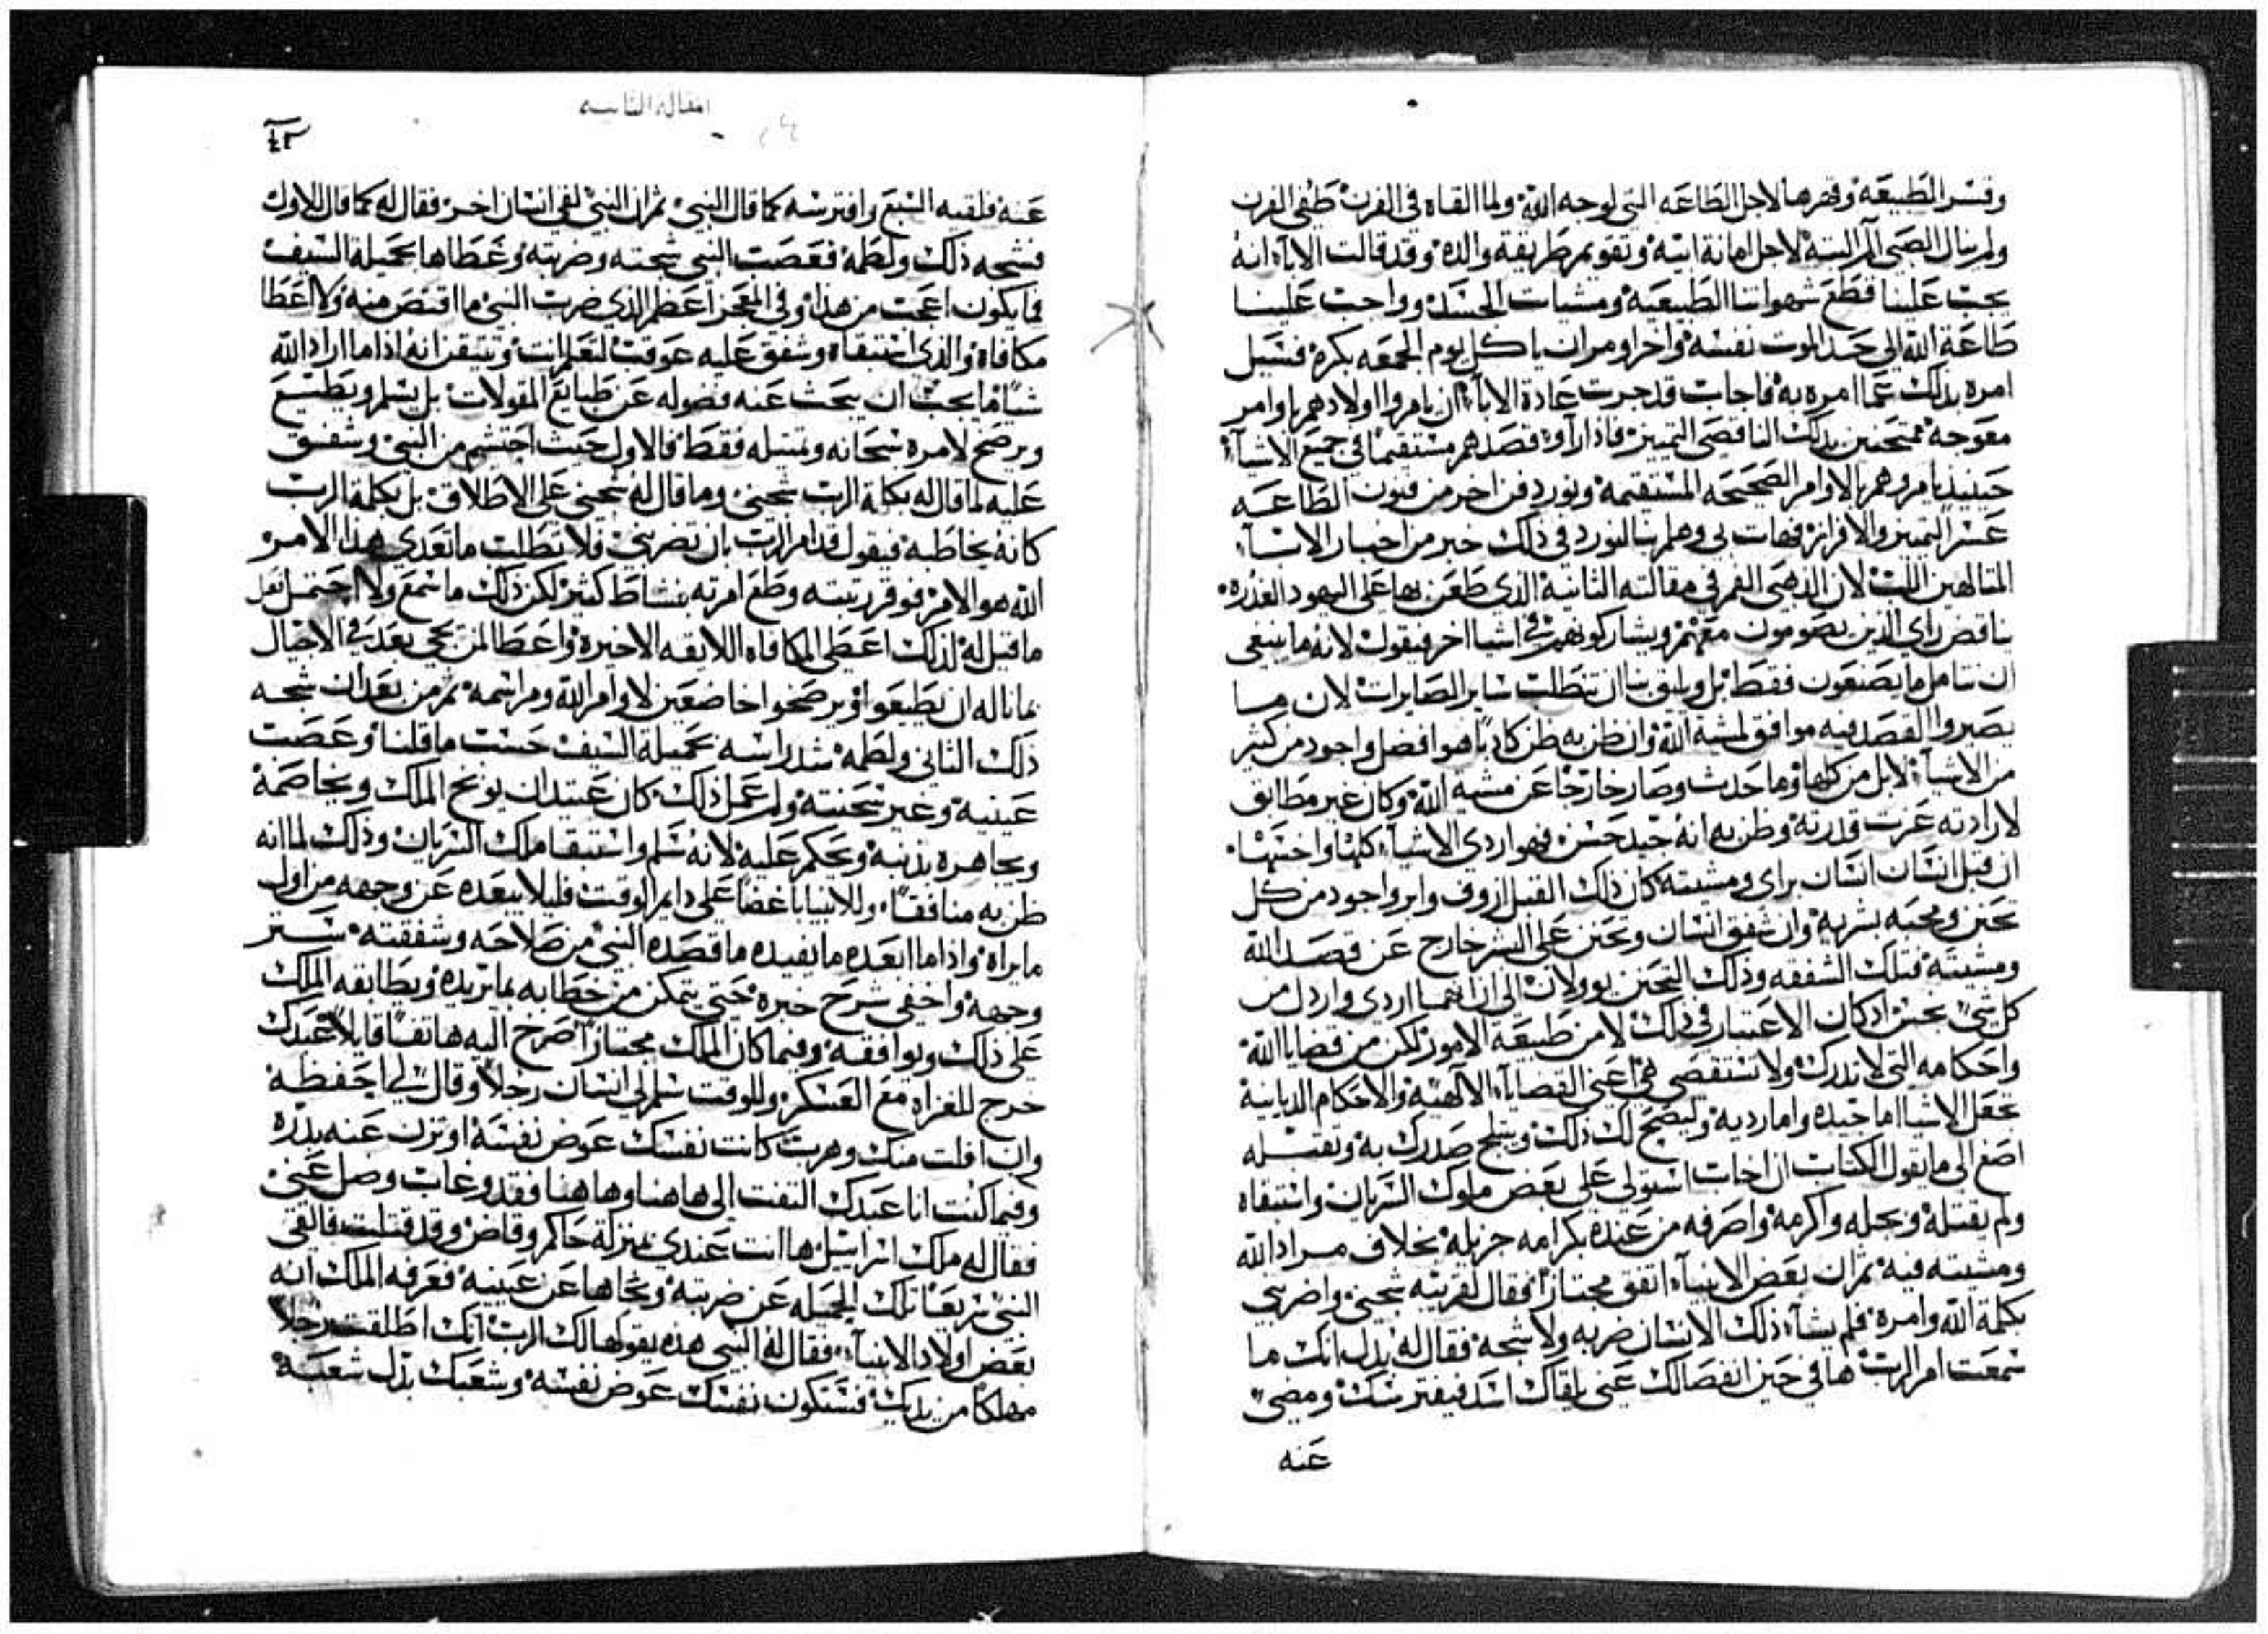 وقسر الطبيعه وقهرها لاجل الطاعه التي لوجه الله ولما القاه في الفرن طفي الفرن
ولم ينال الصبي الم البته لاجل امانة ابيه وتقويم طريقة والده وقد قالت الاباء انه
يجب علينا قطع شهواتنا الطبيعيه ومشيات الجسد وواجب علينا
طاعة الله الي حد الموت نفسه واخر اومر ان ياكل يوم الجمعه بكره فسيل
امره بذلك عما امره به فاجاب قد جرت عادة الاباء ان يامروا اولادهم باوامر
معوجه ممتحنين بذلك الناقصي التمييز فاذا راوا قصدهم مستقيما في جميع الاشياء
حينيذ يامروهم بالاوامر الصحيحه المستقيمه ونورد فن اخر من فنون الطاعه
عسر التمييز والافراز فهات بي وهلم بنا لنورد في ذلك خبر من اخبار الانبياء
المتالهين اللب لان الذهبي الفم في مقالته الثانيه الذي طعن بها علي اليهود الغدره
يناقض راي الذين يصومون معهم ويشاركونهم في اشيا اخر فيقول لانه ما ينبغي
ان نتامل ما يصنعون فقط بل ويليق بنا ان نتطلب ساير الصايرات لان ما
يصير والقصد فيه موافق لمشية الله وان ظن به ظن كاذبا هو افضل واجود من كثير
من الاشياء لا بل من كلها وما حدث وصار خارجا عن مشية الله وكان غير مطابق
لارادته عزت قدرته وظن به انه جيد حسن فهو اردي الاشياء كلها واخسها
ان قتل انسان انسان براي ومشيته كان ذلك القتل اروف وابر واجود من كل
تحنن ومحبه بشريه وان شفق انسان وتحنن علي البشر خارج عن قصد الله
ومشيته فتلك الشفقه وذلك التحنن يوولان الي انهما اردي وارذل من
كل شي بحسن اذ كان الاعتبار في ذلك لا من طبيعة الامور لكن من قضايا الله
واحكامه التي لا تدرك ولا تستقصي هي اعني القضايا الالهيه والاحكام الديانيه
تجعل الاشيا اما جيده واما رديه وليصح لك ذلك ويثلج صدرك به وتقتبله
اصغ الي ما يقول الكتاب ان اخاب استولي علي بعض ملوك السريان واستبقاه
ولم يقتله وبجله واكرمه واصرفه من عنده بكرامه جزيله بخلاف مراد الله
ومشيته فيه ثم ان بعض الانبياء اتفق مجتازا فقال لقرينه شجني واضربني
بكلمة الله وامره فلم يشاء ذلك الانسان ضربه ولا شجه فقال له بدل انك ما
سمعت امر الرب ها في حين انفصالك عني يلقاك اسد فيفترسك ومضي
عنه
٤٣
المقاله الثانيه
عنه فلقيه السبع وافترسه كما قال النبي ثم ان النبي لقي انسان اخر فقال له كما قال للاول
فشجه ذلك ولطمه فعصب النبي شجته وضربته وغطاها بحميلة السيف
فما يكون اعجب من هذا وفي المعجز اعظم الذي ضرب النبي ما اقتص منه ولا اعطا
مكافاه والذي استبقاه وشفق عليه عوقب لتعلم انت وتتيقن انه اذا ما اراد الله
شيا ما يجب ان يبحث عنه فضوله عن طبايع المقولات بل يسلم ويطيع
ويرضخ لامره سبحانه ويمتثله فقط فالاول حيث احتشم من النبي وشفق
عليه لما قال له بكلمة الرب شجني وما قال له شجني علي الاطلاق بل بكلمة الرب
كانه يخاطبه فيقول قد امر الرب بان تضربني فلا تطلب ما تعدي هذا الامر
الله هو الامر فوقر رتبته وطع امرته بنشاط كثير لكن ذلك ما سمع ولا احتمل لفعل
ما قيل له لذلك اعطي المكافاه اللايقه الاخيره واعطا لمن يجي بعد في الاجيال
بما ناله ان يطيعوا ويرضخوا خاضعين لاوامر الله ومراسمه ثم من بعد ان شجه
ذلك الثاني ولطمه شد راسه بحميلة السيف حسب ما قلنا وعصب
عينيه وغير سحنته ولم عمل ذلك كان عتيد ان يوبخ الملك ويخاصمه
ويجاهره بذنبه ويحكم عليه لانه سلم واستبقا ملك السريان وذلك لما انه
ظن به منافقا وللانبيا باغضا علي دايم الوقت فليلا يبعده عن وجهه من اول
ما يراه واذا ما ابعده ما يفيده ما قصده النبي من صلاحه وشفقته ستر
وجهه واخفي شرح خبره حتي يتمكن من خطابه بما يريده ويطابقه الملك
علي ذلك ويوافقه وفيما كان الملك مجتازا صرخ اليه هاتفا قايلا عبدك
خرج للغزاه مع العسكر وللوقت سلم لي انسان رجلا وقال لي احفظه
وان افلت منك وهرب كانت نفسك عوض نفسه او تزن عنه بدره
وفيما كنت انا عبدك التفت الي هاهنا وهاهنا فقد وغاب وصل عني
فقال له ملك اسراييل ها انت عندي بمنزلة حاكم وقاض وقد قتلت فالقي
النبي سريعا تلك الحميله عن ضربته ونحاها عن عينيه فعرفه الملك انه
بعض اولاد الانبياء فقال له النبي هذه يقولها لك الرب انك اطلقت رجلا
مهلكا من يديك فستكون نفسك عوض نفسه وشعبك بدل شعبه